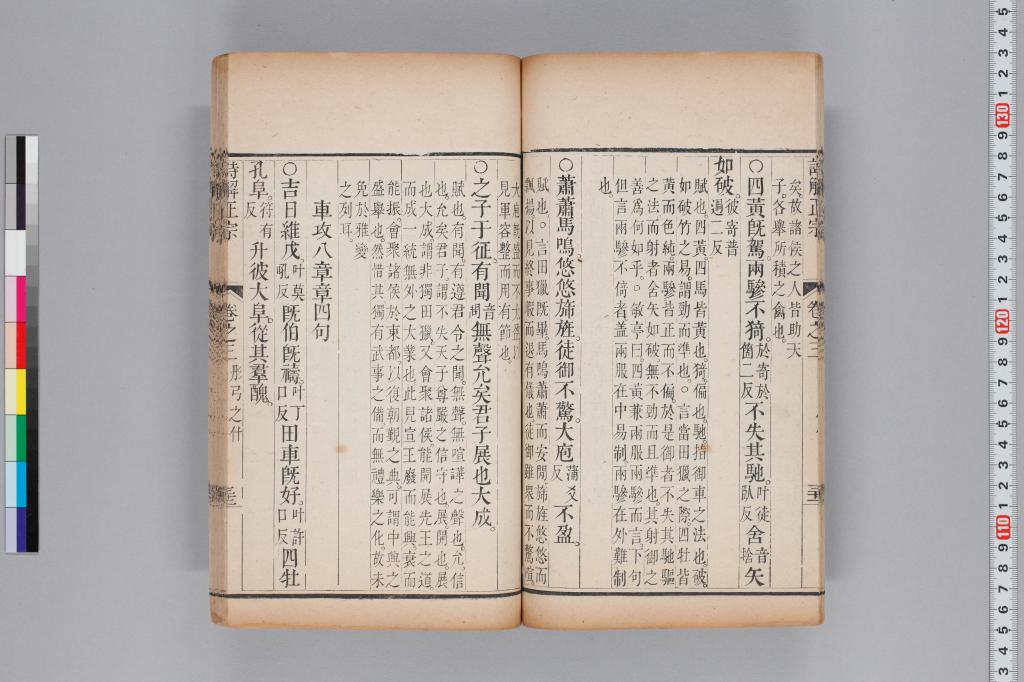 詩解正宗
卷之三
矣。故諸侯之人皆助天
子各舉所積之禽也。
○四黃旣駕兩驂不猗。於寄於箇二反不失其馳。叶徒臥反舍音捨矢
如破。彼寄普過二反
賦也。四黃四馬皆黃也。猗。偏也。馳。指御車之法也。破。
如破竹之易。謂勁而準也。○言當田獵之際。四牡皆
黃而色純。兩驂皆正而不偏。於是御者不失其馳驅
之法。而射者舍矢如破。無不勁而且準也。其射御之
善爲何如乎。○敬亭曰。四黃兼兩服兩驂而言。下句
但言兩驂不倚者。蓋兩服在中易制。兩驂在外難制
也。
○蕭蕭馬鳴悠悠旆旌。徒御不驚。大庖蒲爻反不盈。
賦也。○言田獵旣畢。馬鳴蕭蕭而安閒。旆旌悠悠而
飄揚。以見終事暇而退有儀也。徒御雖衆而不驚喧。
大庖雖盛而不太盈。以
見軍容整而用有節也。
○之子于征。有聞音問無聲允矣君子展也大成。
賦也。有聞。有遵君令之聞。無聲。無喧譁之聲也。允。信
也。允矣君子。謂不失天子尊嚴之信守也。展。開也。展
也大成。謂非獨田獵。又會聚諸侯。能開展先王之道。
而成一統無外之大業也。此見宣王廢而能興。衰而
能振。會聚諸侯於東都以復朝覲之典。可謂中興之
盛舉也。然惜其獨有武事之備而無禮樂之化。故未
免於雅變
之列耳。
車攻八章章四句
○吉日維戊。叶莫吼反旣伯旣禱。叶丁口反田車旣好。叶許口反四牡
孔阜。符有反升彼大阜。從其羣醜。
詩解正宗
卷之三 彤弓之什